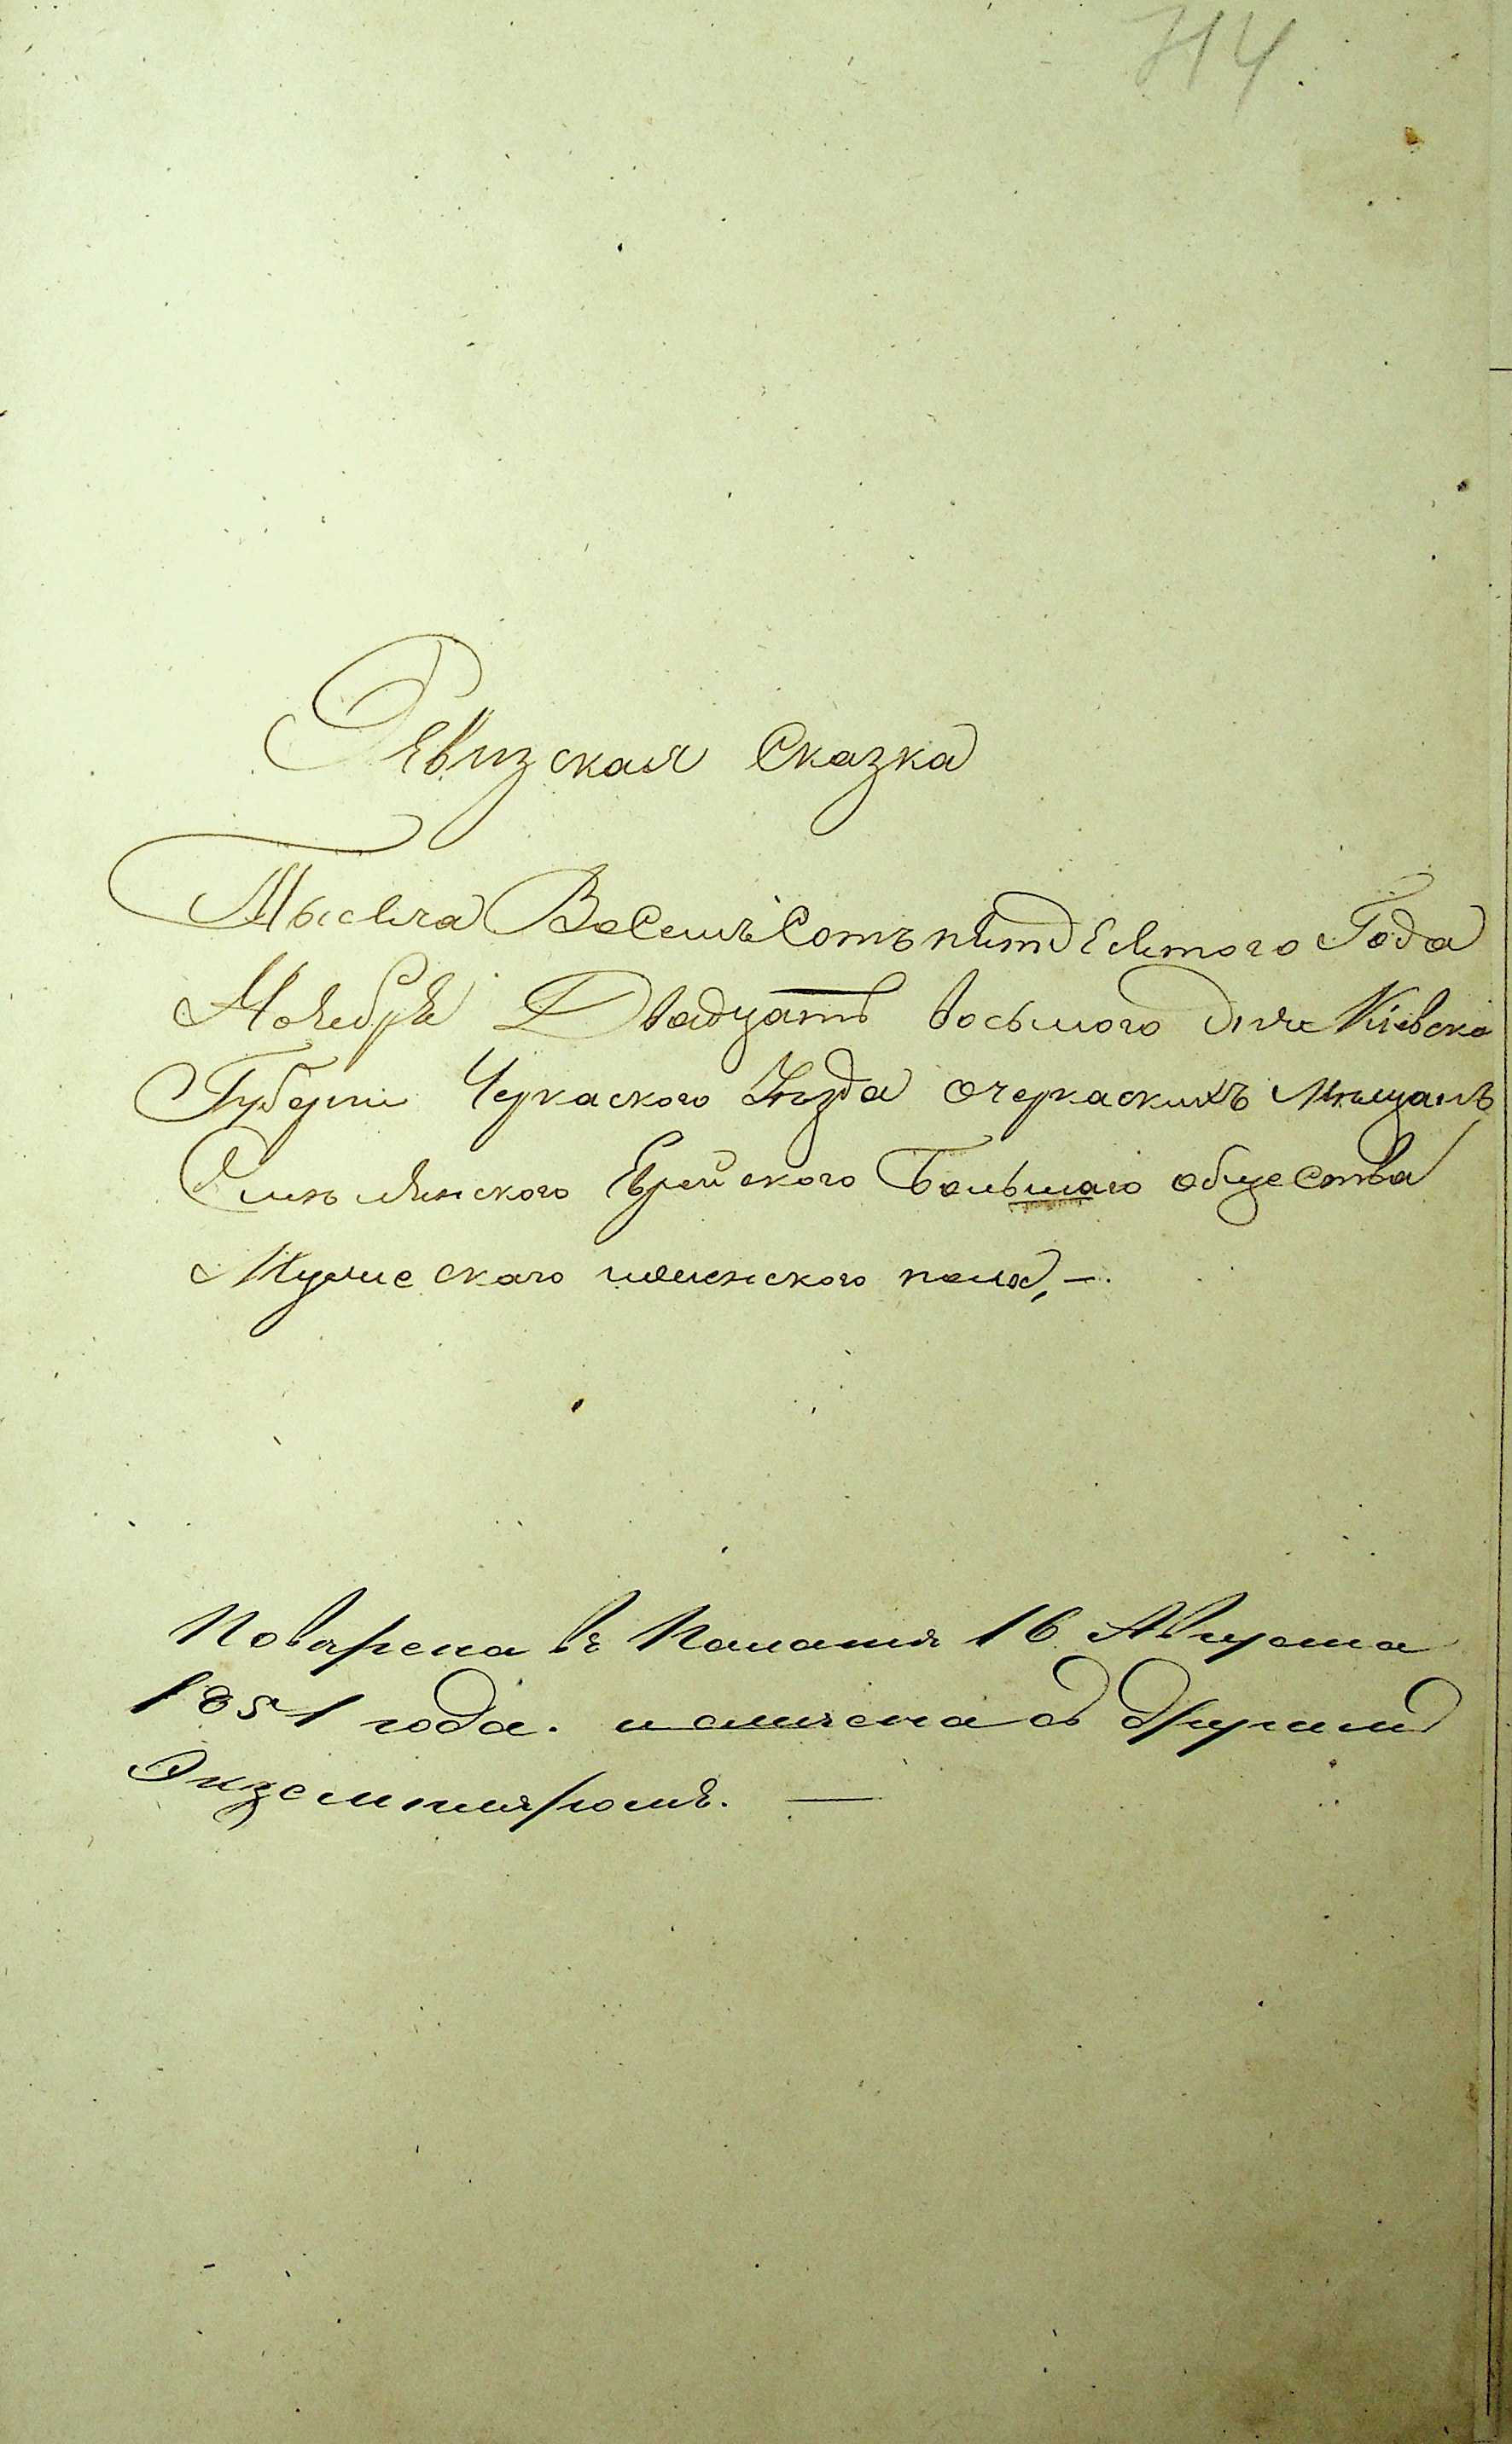 714.
Ревизская Сказка
Тысяча Восемъ Сотъ пятдесятого Года
Ноября Двадцать восьмого дня Кіевско
Губерніи Черкаского Уѣзда очеркаскихъ Мѣщанъ
Смѣлянского Еврейского Большаго общества
Мужескаго женского пола,—.
Поверена въ Палатѣ 16 Августа
1851 года. и сличена съ другимъ
Экземпляромъ. —